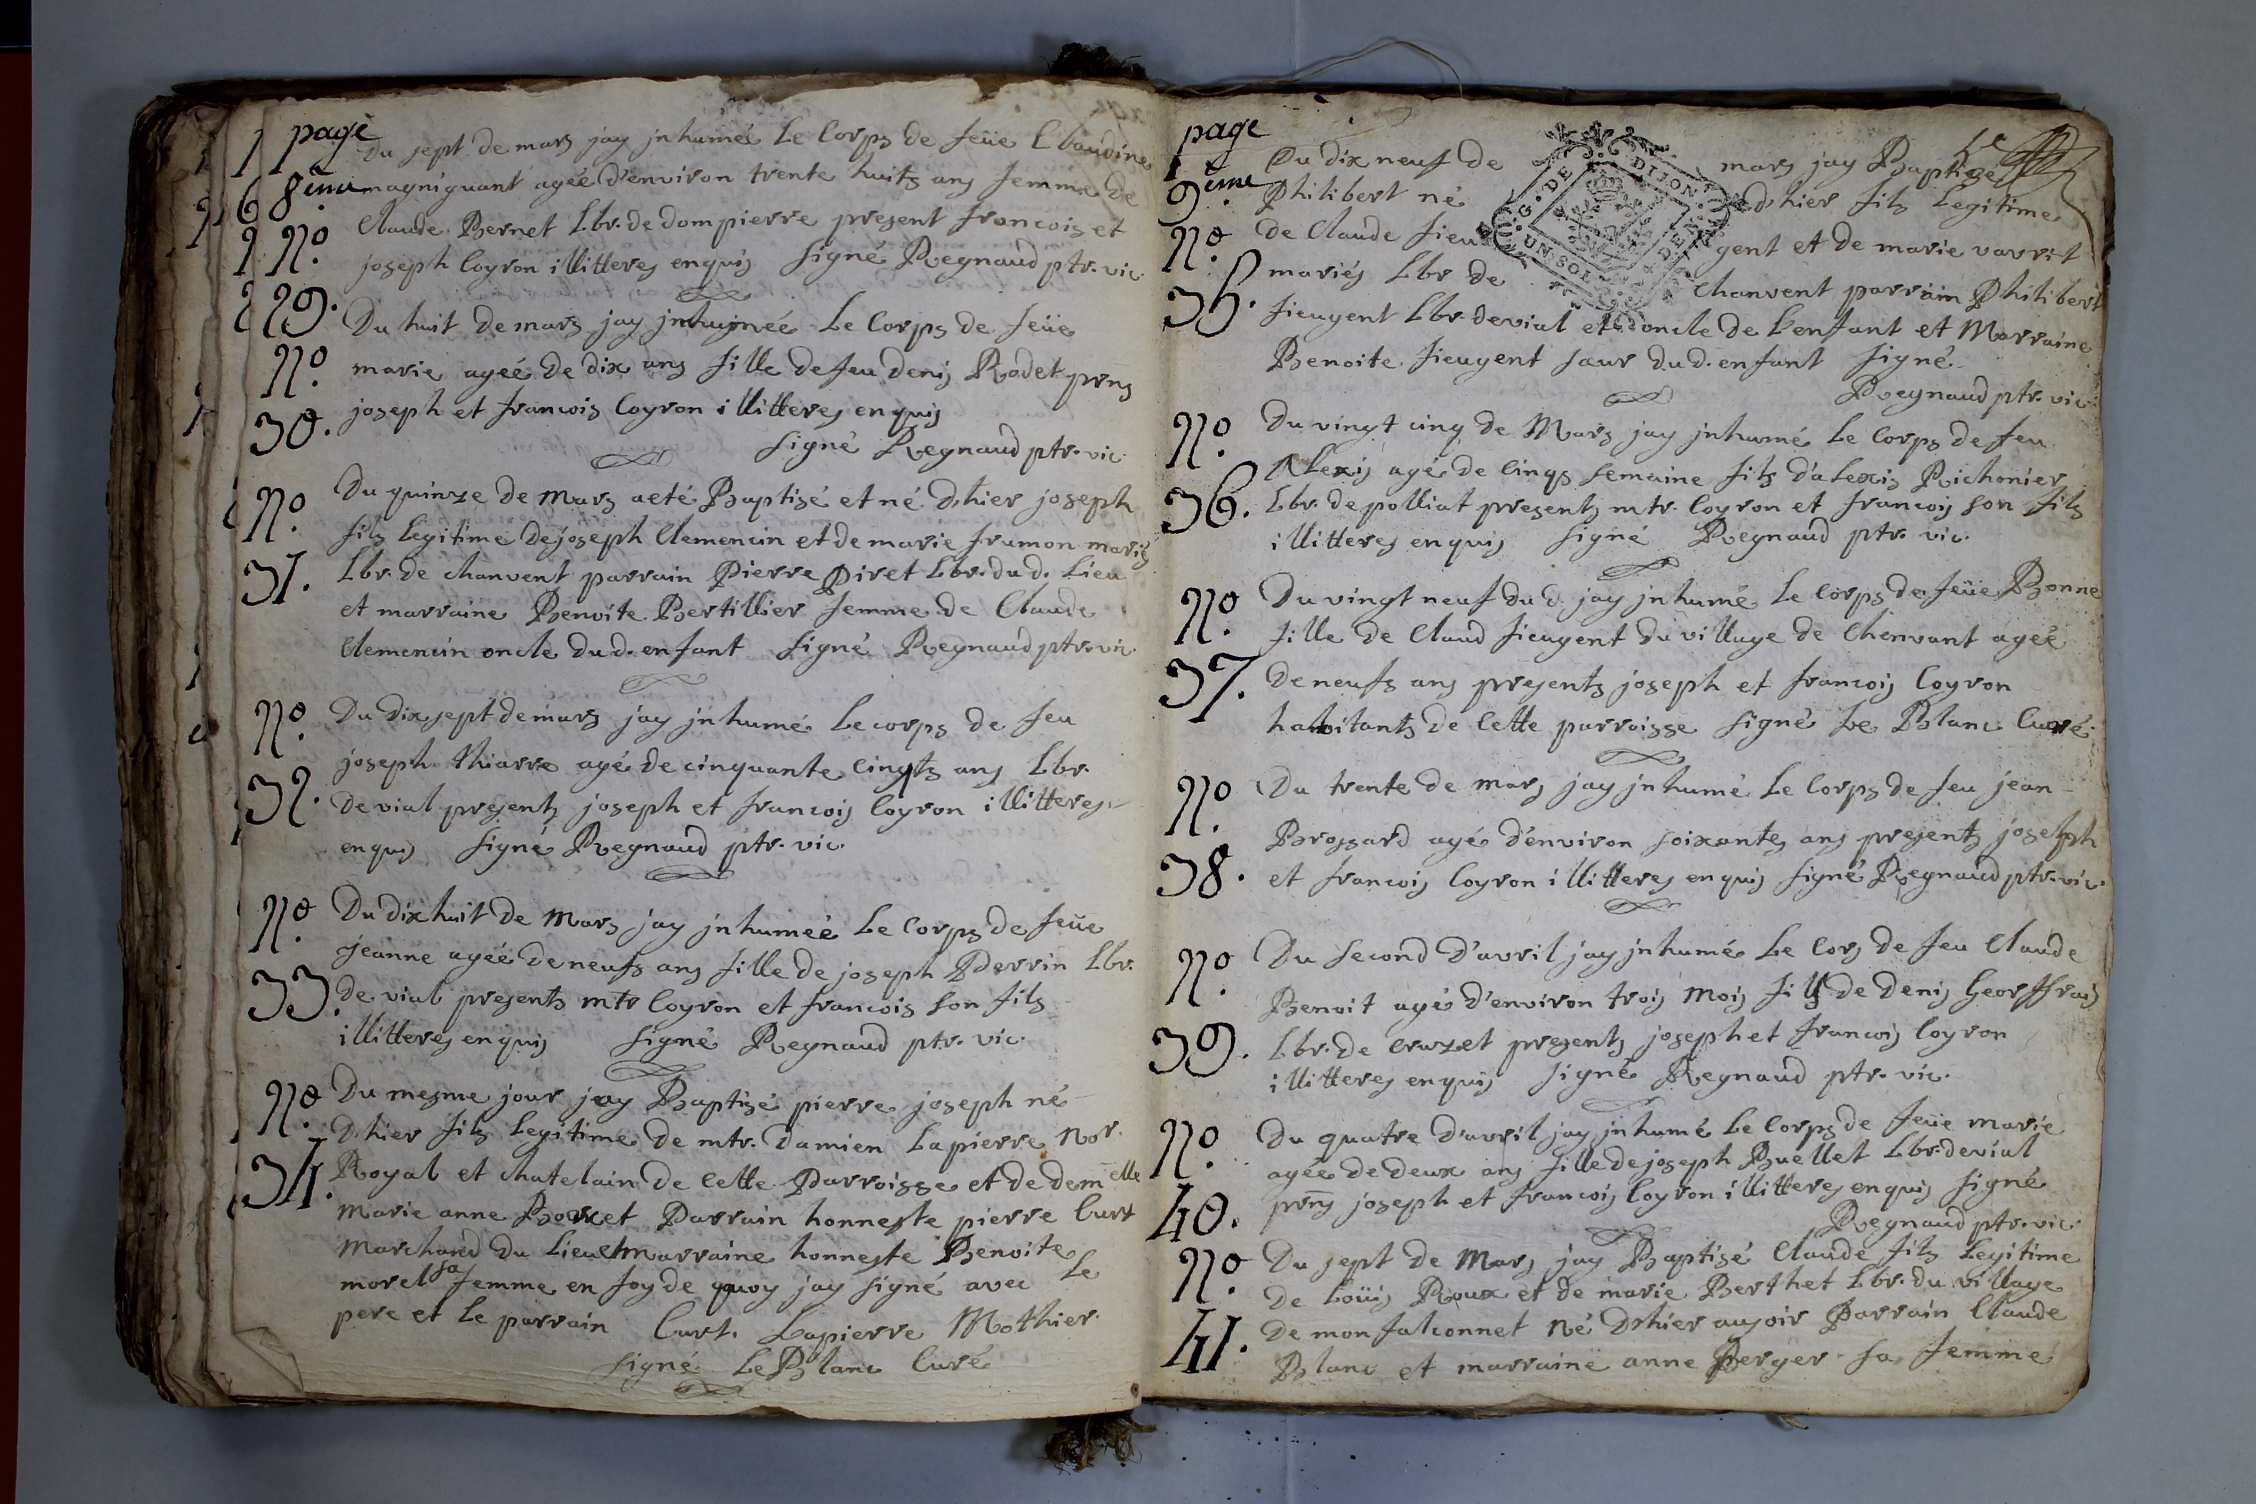 page
8ème
Du sept de mars jay jnhumée Le Corps de feüe Claudine
magniguant agée d'environ trente huits ans femme de
Claude Bernet Lbr. de dompierre present francois et
joseph Coyron illitteres enquis signé Regnaud ptr. vic.
No. 29.
Du huit de mars jay jnhumée Le Corps de feüe
marie agéé de dix ans fille de feu denis Radet prns
joseph et francois Coyron illitteres enquis
signé Regnaud ptr. vic.
No. 30.
Du quinze de Mars aeté Baptisé et né d'hier joseph
fils Legitime de joseph Clemencin et de marie frumon mariés
Lbr. de chanvent parrain Pierre Piret Lbr. du d. Lieu
et marraine Benoite Bertillier femme de Claude
Clemencin oncle du d. enfant signé Regnaud ptr. vic.
No. 31.
Du dix sept de mars jay jnhumé Le corps de feu
joseph thiarre agé de cinquante cinqts ans Lbr.
de vial presents joseph et francois Coyron illitteres
enquis signé Regnaud ptr. vic.
No. 32.
Du dix huit de Mars jay jnhuméé Le Corps de feüe
jeanne agéé de neufs ans fille de joseph Perrin Lbr.
de vial presents mtr Coyron et francois son fils
illitteres enquis signé Regnaud ptr. vic.
No. 33.
Du mesme jour jay Baptisé pierre joseph né
d'hier fils Legitime de mtr. Damien Lapierre Nor.
Royal et chatelain de Cette Parroisse et de demelle
Marie anne Parrain honneste pierre Curt
Marchand du Lieu et marraine honneste Benoite
morel sa femme en foy de quoy jay signé avec Le
pere et Le parrain Curt. Lapierre Mothier.
signé Le Blanc Curé
No. 34.
page
9ème
Du dix neuf de mars jay Baptizé
Philibert né d'hier fils Legitime
de Claude fieugent et de marie vavrit
mariés Lbr de Chanvent parrain Philibert
fieugent Lbr. de vial et oncle de L'enfant et Marraine
Benoite fieugent sœur du d. enfant signé
Regnaud ptr. vic.
G. DE DIJON
UN SOL
No. 35.
Du vingt cinq de Mars jay jnhumé Le Corps de feu
Alexis agé de Cinqs semaine fils d'alexis Richonier
Lbr. de polliat presents mtr. Coyron et francois son fils
illitteres enquis signé Regnaud ptr. vic.
No. 36.
Du vingt neuf du d. jay jnhumé Le Corps de feüe Bonne
fille de Claud fieugent du village de Chenvant agéé
de neufs ans presents joseph et francois Coyron
habitants de Cette parroisse signé Le Blanc Curé
No. 37.
Du trente de mars jay jnhumé Le Corps de feu jean
Brossard agé d'environ soixantes ans presents joseph
et francois Coyron illitteres enquis signé Regnaud ptr. vic.
No. 38.
Du second d'avril jay jnhumé Le Cors de feu Claude
Benoit agé d'environ trois Mois fils de Denis Georffrais
Lbr. de Cruzet presents joseph et francois Coyron
illitteres enquis signé Regnaud ptr. vic.
No. 39.
Du quatre d'avril jay jnhumé Le Corps de feüe marie
agéé de deux ans fille de joseph Buellet Lbr. de vial
prns joseph et francois Coyron illitteres enquis signé
Regnaud ptr. vic.
No. 40.
Du sept de Mars jay Baptisé Claude fils Legitime
de Loüis Roux et de marie Berthet Lbr. du village
de mon falconnet né d'hier au soir Parrain Claude
Blanc et marraine anne Berger sa femme
No. 41.